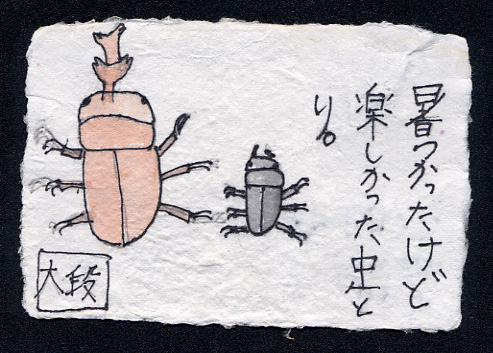 暑つかったけど
楽しかった虫と
り。
大段